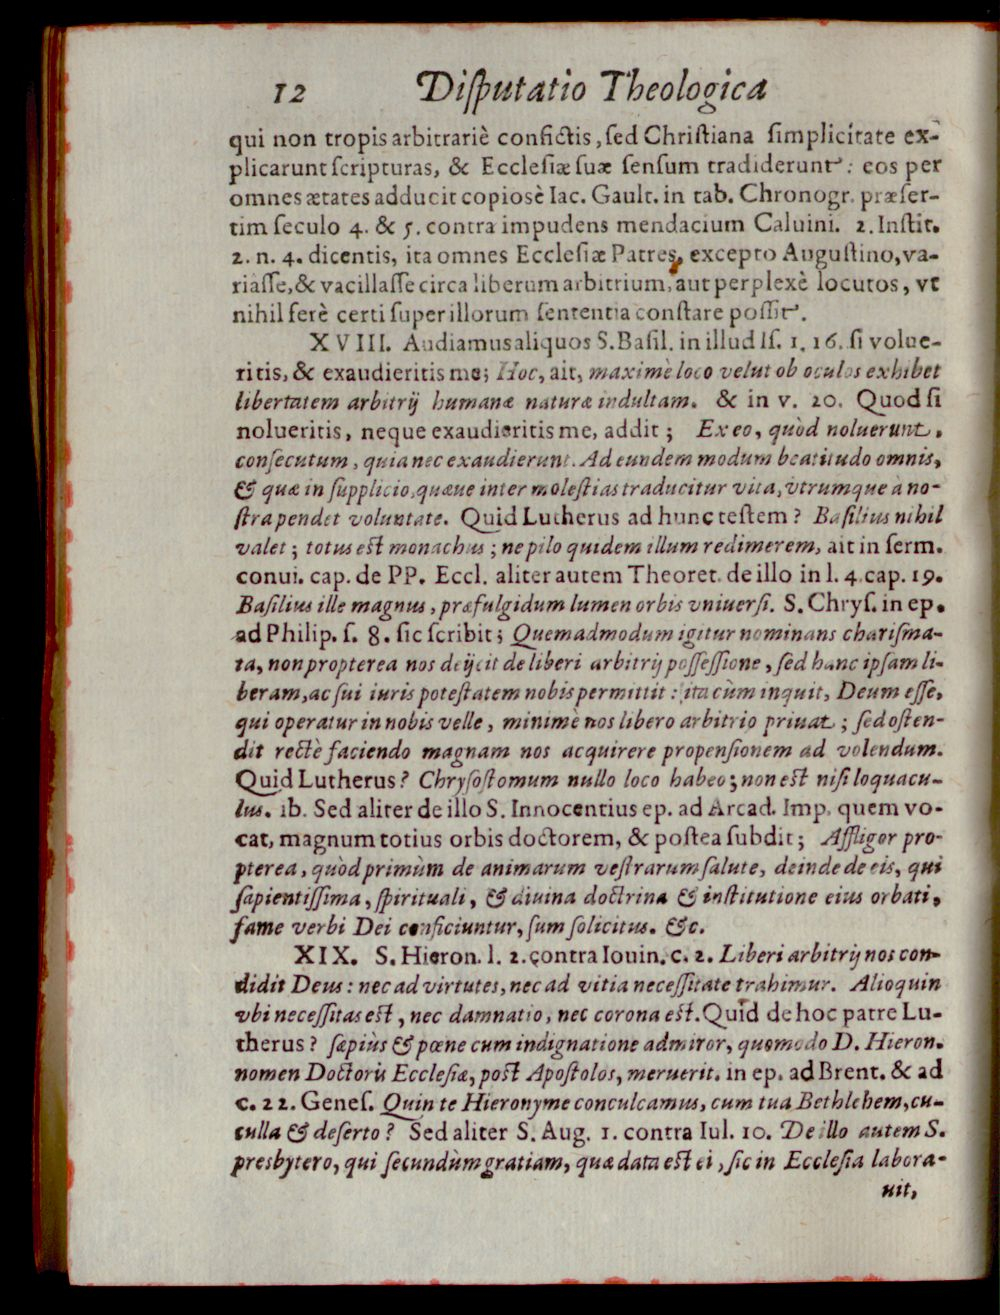 12 Disputatio Theologica
qui non tropis arbitrariè confictis, sed Christiana simplicitate ex-
plicarunt scripturas, & Ecclesiæ suæ sensum tradiderunt: eos per
omnes ætates adducit copiosè Iac. Gault. in tab. Chronogr. præser-
tim seculo 4. & 5. contra impudens mendacium Caluini. 2. Instit.
2. n. 4. dicentis, ita omnes Ecclesiæ Patres, excepto Augustino, va-
riasse, & vacillasse circa liberum arbitrium, aut perplexè locutos, vt
nihil ferè certi super illorum sententia constare possit.
XVIII. Audiamus aliquos S. Basil. in illud Is. 1. 16. si volue-
ritis, & exaudieritis me; Hoc, ait, maximè loco velut ob oculos exhibet
libertatem arbitrij humanæ naturæ indultam. & in v. 20. Quod si
nolueritis, neque exaudieritis me, addit; Ex eo, quòd noluerunt,
consecutum, quia nec exaudierunt. Ad eundem modum beatitudo omnis,
& quæ in supplicio, quæue inter molestias traducitur vita, vtrumque à no-
stra pendet voluntate. Quid Lutherus ad hunc testem? Basilius nihil
valet; totus est monachus; ne pilo quidem illum redimerem, ait in serm.
conui. cap. de PP. Eccl. aliter autem Theoret. de illo in l. 4. cap. 19.
Basilius ille magnus, præfulgidum lumen orbis vniuersi. S. Chrys. in ep.
ad Philip. s. 8. sic scribit; Quemadmodum igitur nominans charisma-
ta, non propterea nos deijcit de liberi arbitrij possessione, sed hanc ipsam li-
beram, ac sui iuris potestatem nobis permittit: ita cùm inquit, Deum esse,
qui operatur in nobis velle, minimè nos libero arbitrio priuat; sed osten-
dit rectè faciendo magnam nos acquirere propensionem ad volendum.
Quid Lutherus? Chrysostomum nullo loco habeo; non est nisi loquacu-
lus. ib. Sed aliter de illo S. Innocentius ep. ad Arcad. Imp. quem vo-
cat, magnum totius orbis doctorem, & postea subdit; Affligor pro-
pterea, quòd primùm de animarum vestrarum salute, deinde de eis, qui
sapientissima, spirituali, & diuina doctrina & institutione eius orbati,
fame verbi Dei conficiuntur, sum solicitus. &c.
XIX. S. Hieron. l. 2. contra Iouin. c. 2. Liberi arbitrij nos con-
didit Deus: nec ad virtutes, nec ad vitia necessitate trahimur. Alioquin
vbi necessitas est, nec damnatio, nec corona est. Quid de hoc patre Lu-
therus? sæpiùs & pœne cum indignatione admiror, quomodo D. Hieron.
nomen Doctoris Ecclesiæ, post Apostolos, meruerit. in ep. ad Brent. & ad
c. 22. Genes. Quin te Hieronyme conculcamus, cum tua Bethlehem, cu-
culla & deserto? Sed aliter S. Aug. 1. contra Iul. 10. De illo autem S.
presbytero, qui secundùm gratiam, quæ data est ei, sic in Ecclesia labora-
uit,